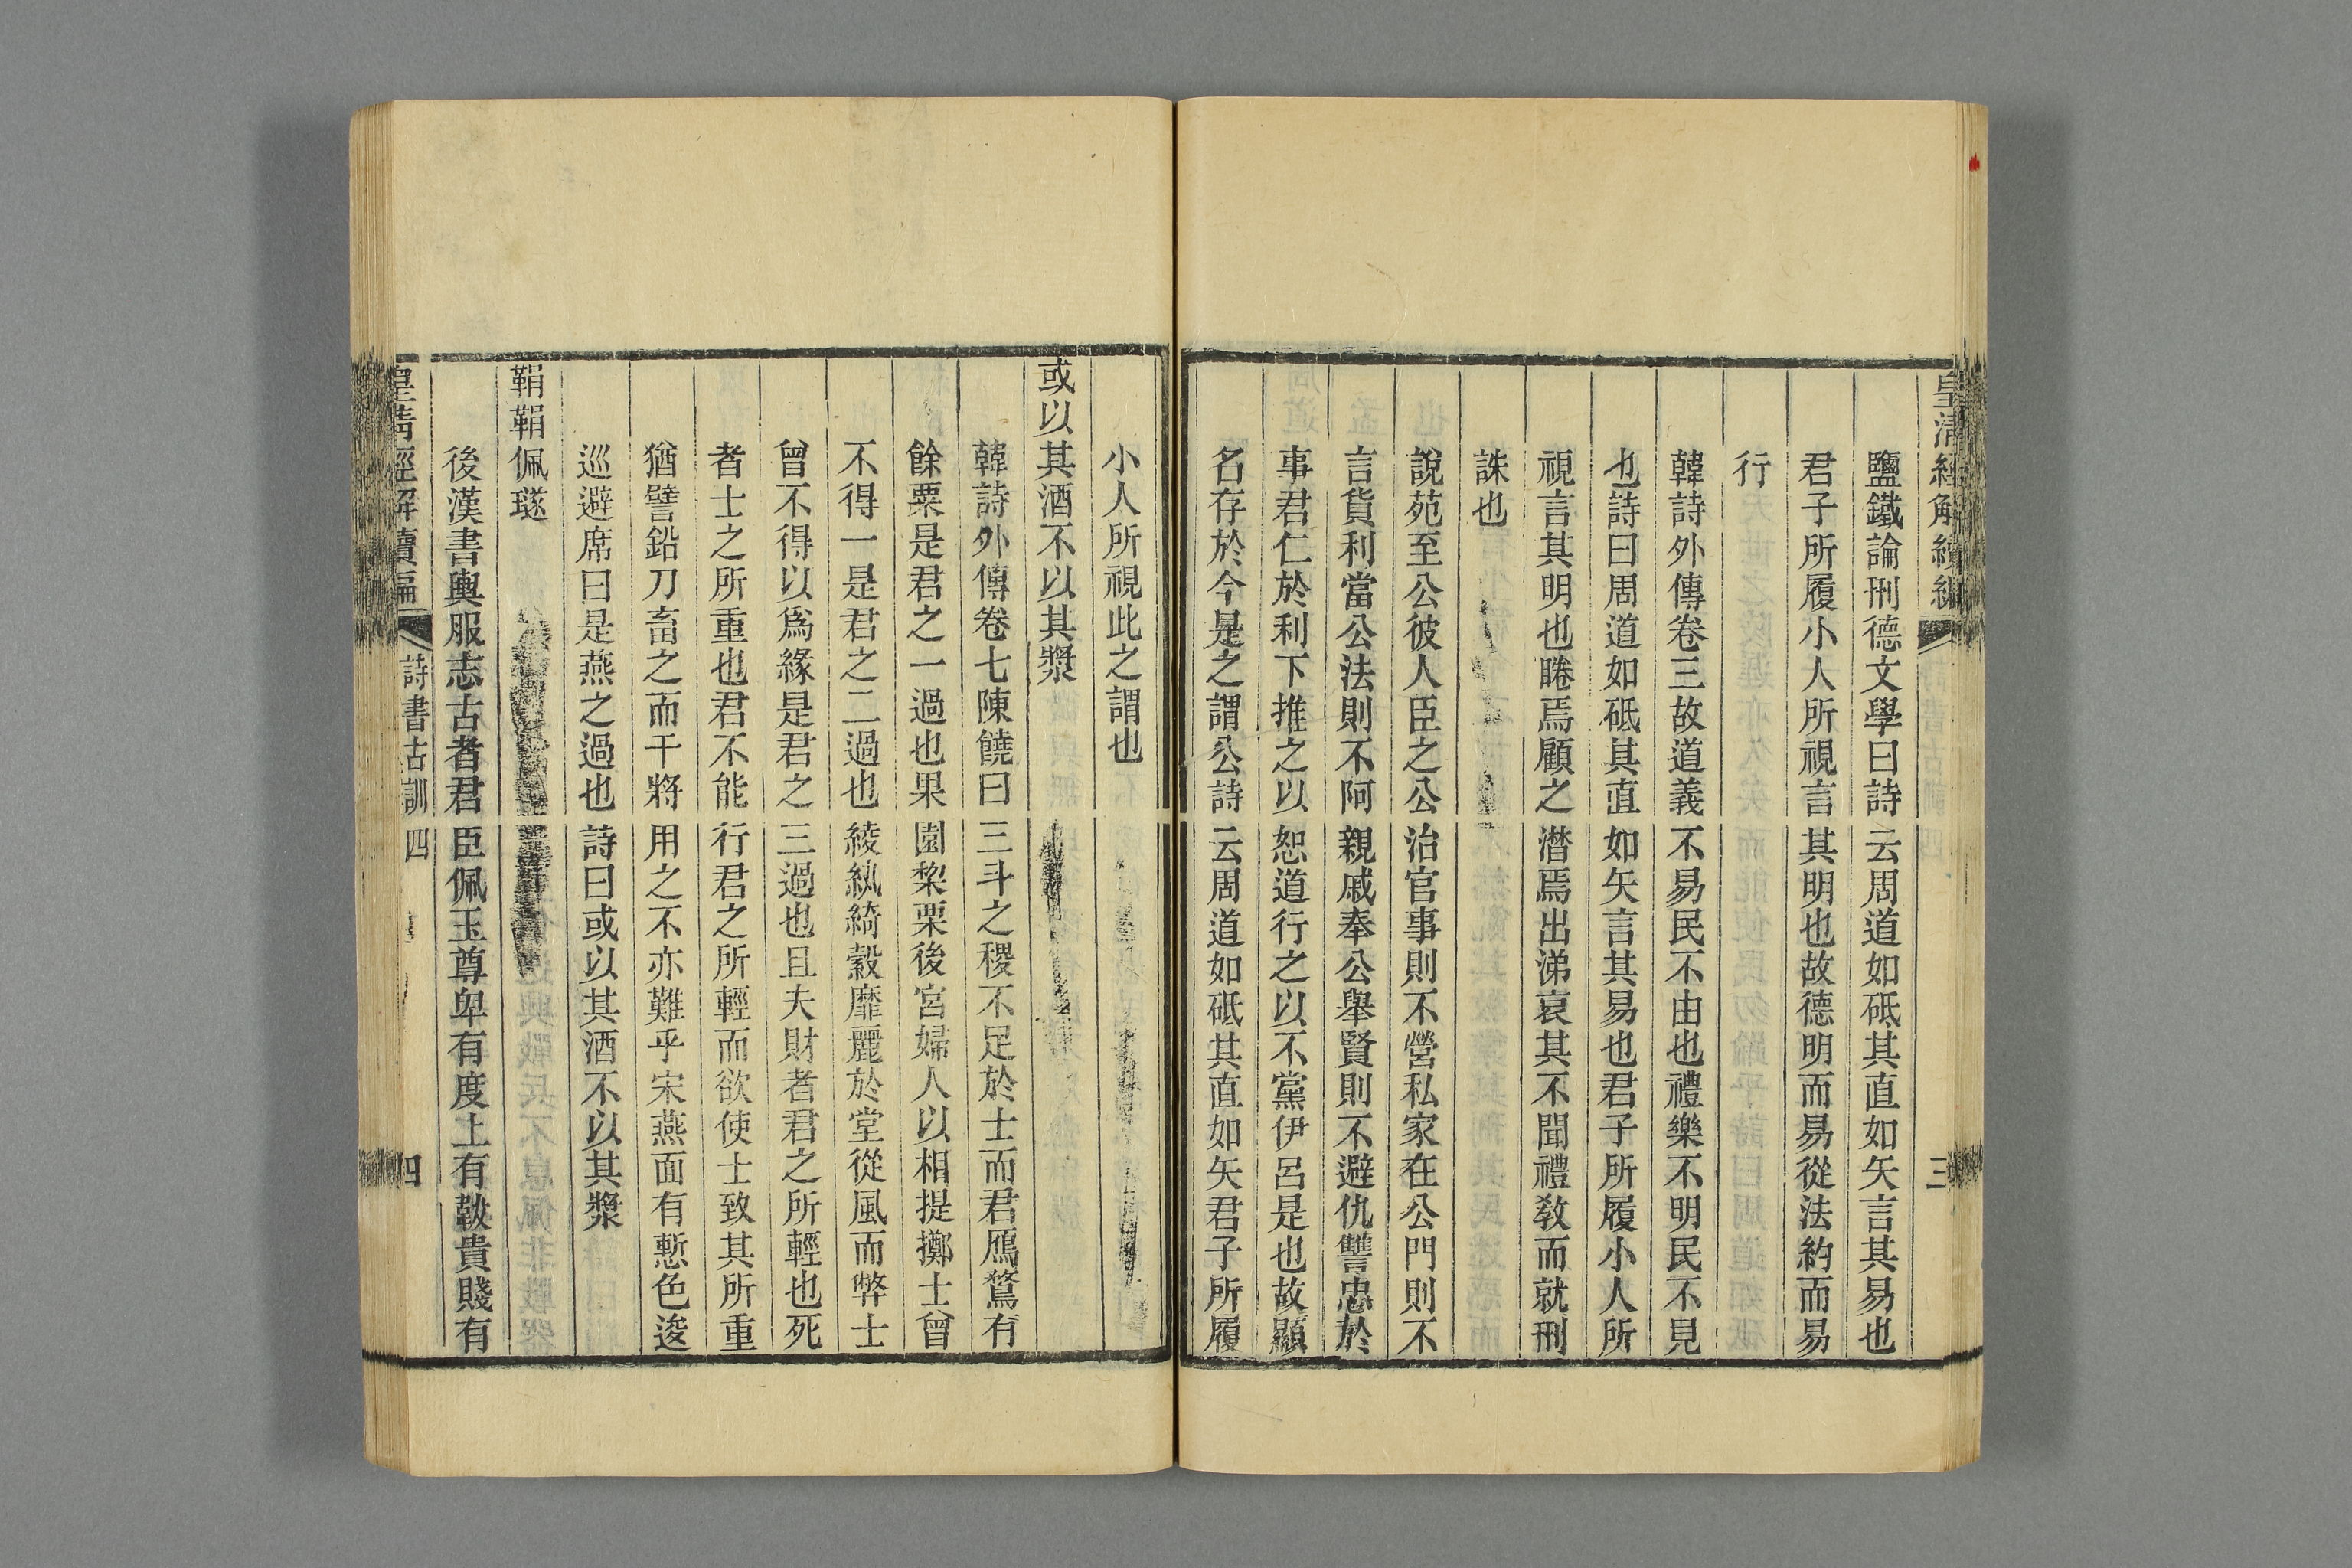 皇清經解續編
三
鹽鐵論刑德文學曰詩云周道如砥其直如矢言其易也
君子所履小人所視言其明也故德明而易從法約而易
行
韓詩外傳卷三故道義不易民不由也禮樂不明民不見
也詩曰周道如砥其直如矢言其易也君子所履小人所
視言其明也睠焉顧之潛焉出涕哀其不聞禮教而就刑
誅也
說苑至公彼人臣之公治官事則不營私家在公門則不
言貨利當公法則不阿親戚奉公舉賢則不避仇讐忠於
事君仁於利下推之以恕道行之以不黨伊呂是也故顯
名存於今是之謂公詩云周道如砥其直如矢君子所履
小人所視此之謂也
或以其酒不以其漿
韓詩外傳卷七陳饒曰三斗之稷不足於士而君鴈鶩有
餘粟是君之一過也果園棃栗後宮婦人以相提擲士曾
不得一是君之二過也綾紈綺縠靡麗於堂從風而弊士
曾不得以爲緣是君之三過也且夫財者君之所輕也死
者士之所重也君不能行君之所輕而欲使士致其所重
猶譬鉛刀畜之而干將用之不亦難乎宋燕面有慙色逡
巡避席曰是燕之過也詩曰或以其酒不以其漿
鞙鞙佩璲
後漢書輿服志古者君臣佩玉尊卑有度上有韍貴賤有
皇清經解續編
詩書古訓四
四